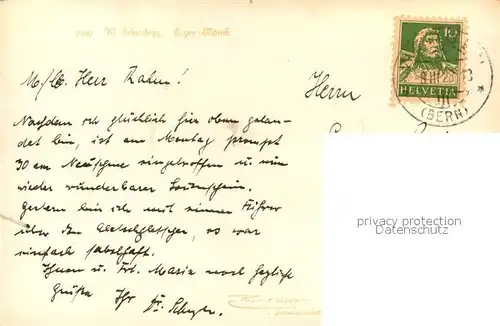 M. lb. Herr Rahm!
Herrn
Nachdem ich glücklich hier oben gelan-
det bin, ist am Montag prompt
30 cm Neuschnee eingetroffen u. nun
wieder wunderbarer Sonnenschein.
Gestern bin ich mit einem Führer
über den Aletschgletscher, es war
einfach fabelhaft.
Ihnen u. Frl. Maria noch herzliche
Grüße Ihr Dr.
10
HELVETIA
(BERN)
privacy protection
Datenschutz